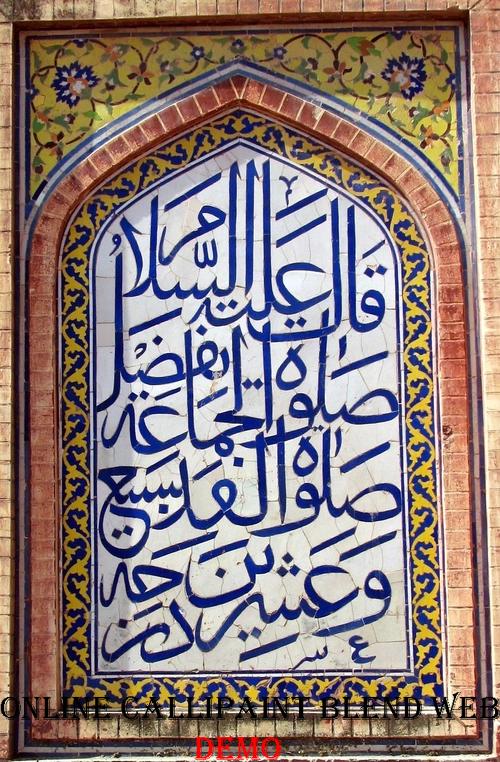 قال عليه السلام
صلوة الجماعه تفضل
صلوة الفذ بسبع
وعشرين درجه
ONLINE CALLIPAINT BLEND WEB
DEMO